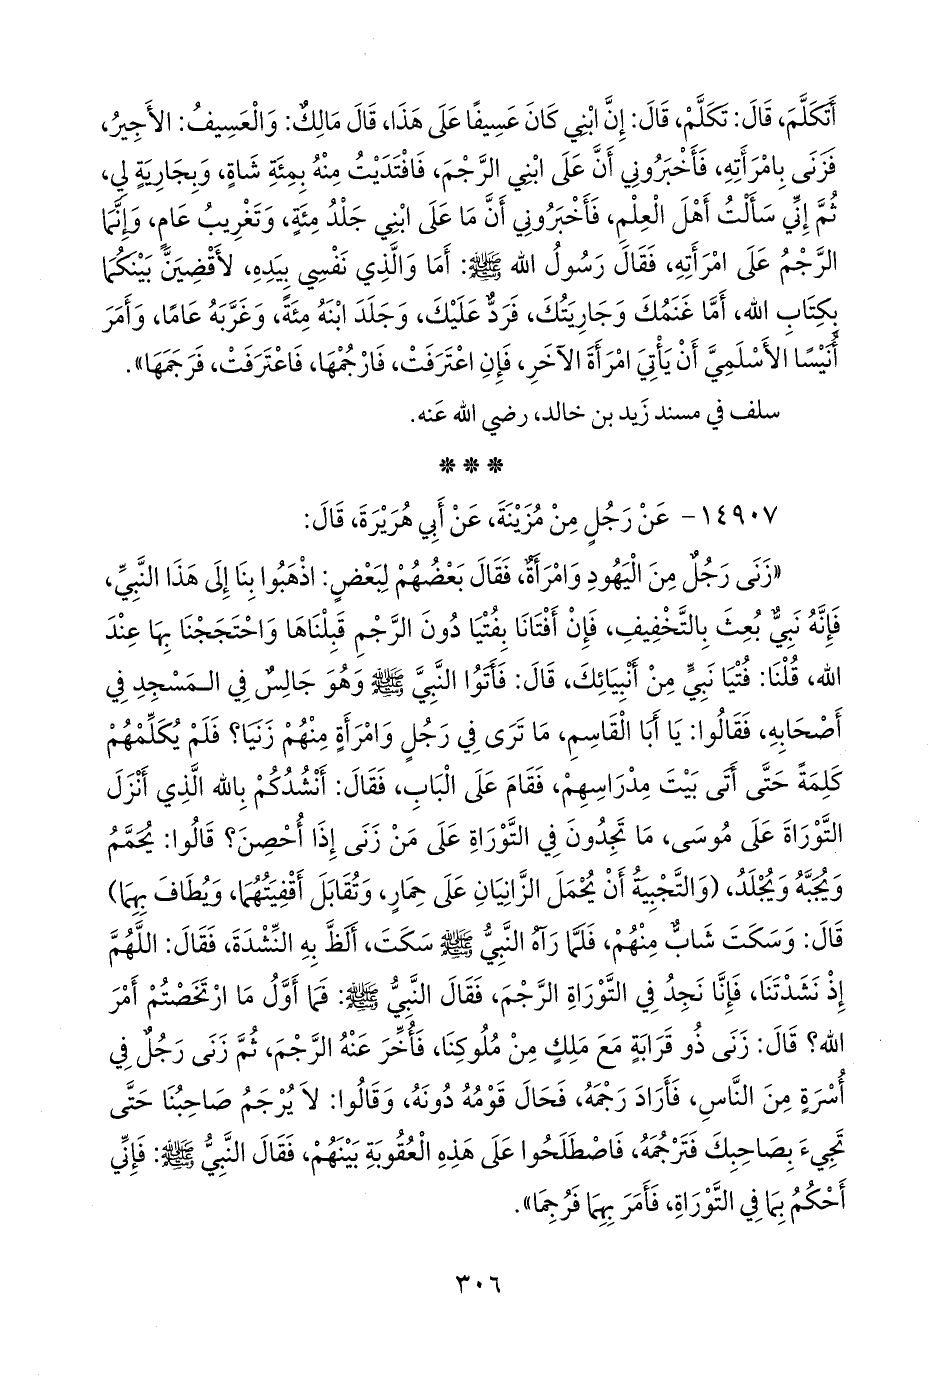 أَتَكَلَّمَ، قَالَ: تَكَلَّمْ، قَالَ: إِنَّ ابْنِي كَانَ عَسِيفًا عَلَى هَذَا، قَالَ مَالِكٌ: وَالْعَسِيفُ: الأَجِيرُ،
فَزَنَى بِامْرَأَتِهِ، فَأَخْبَرُونِي أَنَّ عَلَى ابْنِي الرَّجْمَ، فَافْتَدَيْتُ مِنْهُ بِمِئَةِ شَاةٍ، وَبِجَارِيَةٍ لِي،
ثُمَّ إِنِّي سَأَلْتُ أَهْلَ الْعِلْمِ، فَأَخْبَرُونِي أَنَّ مَا عَلَى ابْنِي جَلْدُ مِئَةٍ، وَتَغْرِيبُ عَامٍ، وَإِنَّمَا
الرَّجْمُ عَلَى امْرَأَتِهِ، فَقَالَ رَسُولُ الله ﷺ: أَمَا وَالَّذِي نَفْسِي بِيَدِهِ، لأَقْضِيَنَّ بَيْنَكُمَا
بِكِتَابِ الله، أَمَّا غَنَمُكَ وَجَارِيَتُكَ، فَرَدٌّ عَلَيْكَ، وَجَلَدَ ابْنَهُ مِئَةً، وَغَرَّبَهُ عَامًا، وَأَمَرَ
أُنَيْسًا الأَسْلَمِيَّ أَنْ يَأْتِيَ امْرَأَةَ الآخَرِ، فَإِنِ اعْتَرَفَتْ، فَارْجُمْهَا، فَاعْتَرَفَتْ، فَرَجَمَهَا».
سلف في مسند زَيد بن خالد، رضي الله عَنه.
* * *
١٤٩٠٧- عَنْ رَجُلٍ مِنْ مُزَيْنَةَ، عَنْ أَبِي هُرَيْرَةَ، قَالَ:
«زَنَى رَجُلٌ مِنَ الْيَهُودِ وَامْرَأَةٌ، فَقَالَ بَعْضُهُمْ لِبَعْضٍ: اذْهَبُوا بِنَا إِلَى هَذَا النَّبِيِّ،
فَإِنَّهُ نَبِيٌّ بُعِثَ بِالتَّخْفِيفِ، فَإِنْ أَفْتَانَا بِفُتْيَا دُونَ الرَّجْمِ قَبِلْنَاهَا وَاحْتَجَجْنَا بِهَا عِنْدَ
الله، قُلْنَا: فُتْيَا نَبِيٍّ مِنْ أَنْبِيَائِكَ، قَالَ: فَأَتَوُا النَّبِيَّ ﷺ وَهُوَ جَالِسٌ فِي الْمَسْجِدِ فِي
أَصْحَابِهِ، فَقَالُوا: يَا أَبَا الْقَاسِمِ، مَا تَرَى فِي رَجُلٍ وَامْرَأَةٍ مِنْهُمْ زَنَيَا؟ فَلَمْ يُكَلِّمْهُمْ
كَلِمَةً حَتَّى أَتَى بَيْتَ مِدْرَاسِهِمْ، فَقَامَ عَلَى الْبَابِ، فَقَالَ: أَنْشُدُكُمْ بِالله الَّذِي أَنْزَلَ
التَّوْرَاةَ عَلَى مُوسَى، مَا تَجِدُونَ فِي التَّوْرَاةِ عَلَى مَنْ زَنَى إِذَا أُحْصِنَ؟ قَالُوا: يُحَمَّمُ
وَيُجَبَّهُ وَيُجْلَدُ، (وَالتَّجْبِيَةُ أَنْ يُحْمَلَ الزَّانِيَانِ عَلَى حِمَارٍ، وَتُقَابَلَ أَقْفِيَتُهُمَا، وَيُطَافَ بِهِمَا)
قَالَ: وَسَكَتَ شَابٌّ مِنْهُمْ، فَلَمَّا رَآهُ النَّبِيُّ ﷺ سَكَتَ، أَلَظَّ بِهِ النِّشْدَةَ، فَقَالَ: اللَّهُمَّ
إِذْ نَشَدْتَنَا، فَإِنَّا نَجِدُ فِي التَّوْرَاةِ الرَّجْمَ، فَقَالَ النَّبِيُّ ﷺ: فَمَا أَوَّلُ مَا ارْتَخَصْتُمْ أَمْرَ
الله؟ قَالَ: زَنَى ذُو قَرَابَةٍ مَعَ مَلِكٍ مِنْ مُلُوكِنَا، فَأُخِّرَ عَنْهُ الرَّجْمَ، ثُمَّ زَنَى رَجُلٌ فِي
أُسْرَةٍ مِنَ النَّاسِ، فَأَرَادَ رَجْمَهُ، فَحَالَ قَوْمُهُ دُونَهُ، وَقَالُوا: لاَ يُرْجَمُ صَاحِبُنَا حَتَّى
تَجِيءَ بِصَاحِبِكَ فَتَرْجُمَهُ، فَاصْطَلَحُوا عَلَى هَذِهِ الْعُقُوبَةِ بَيْنَهُمْ، فَقَالَ النَّبِيُّ ﷺ: فَإِنِّي
أَحْكُمُ بِمَا فِي التَّوْرَاةِ، فَأَمَرَ بِهِمَا فَرُجِمَا».
٣٠٦